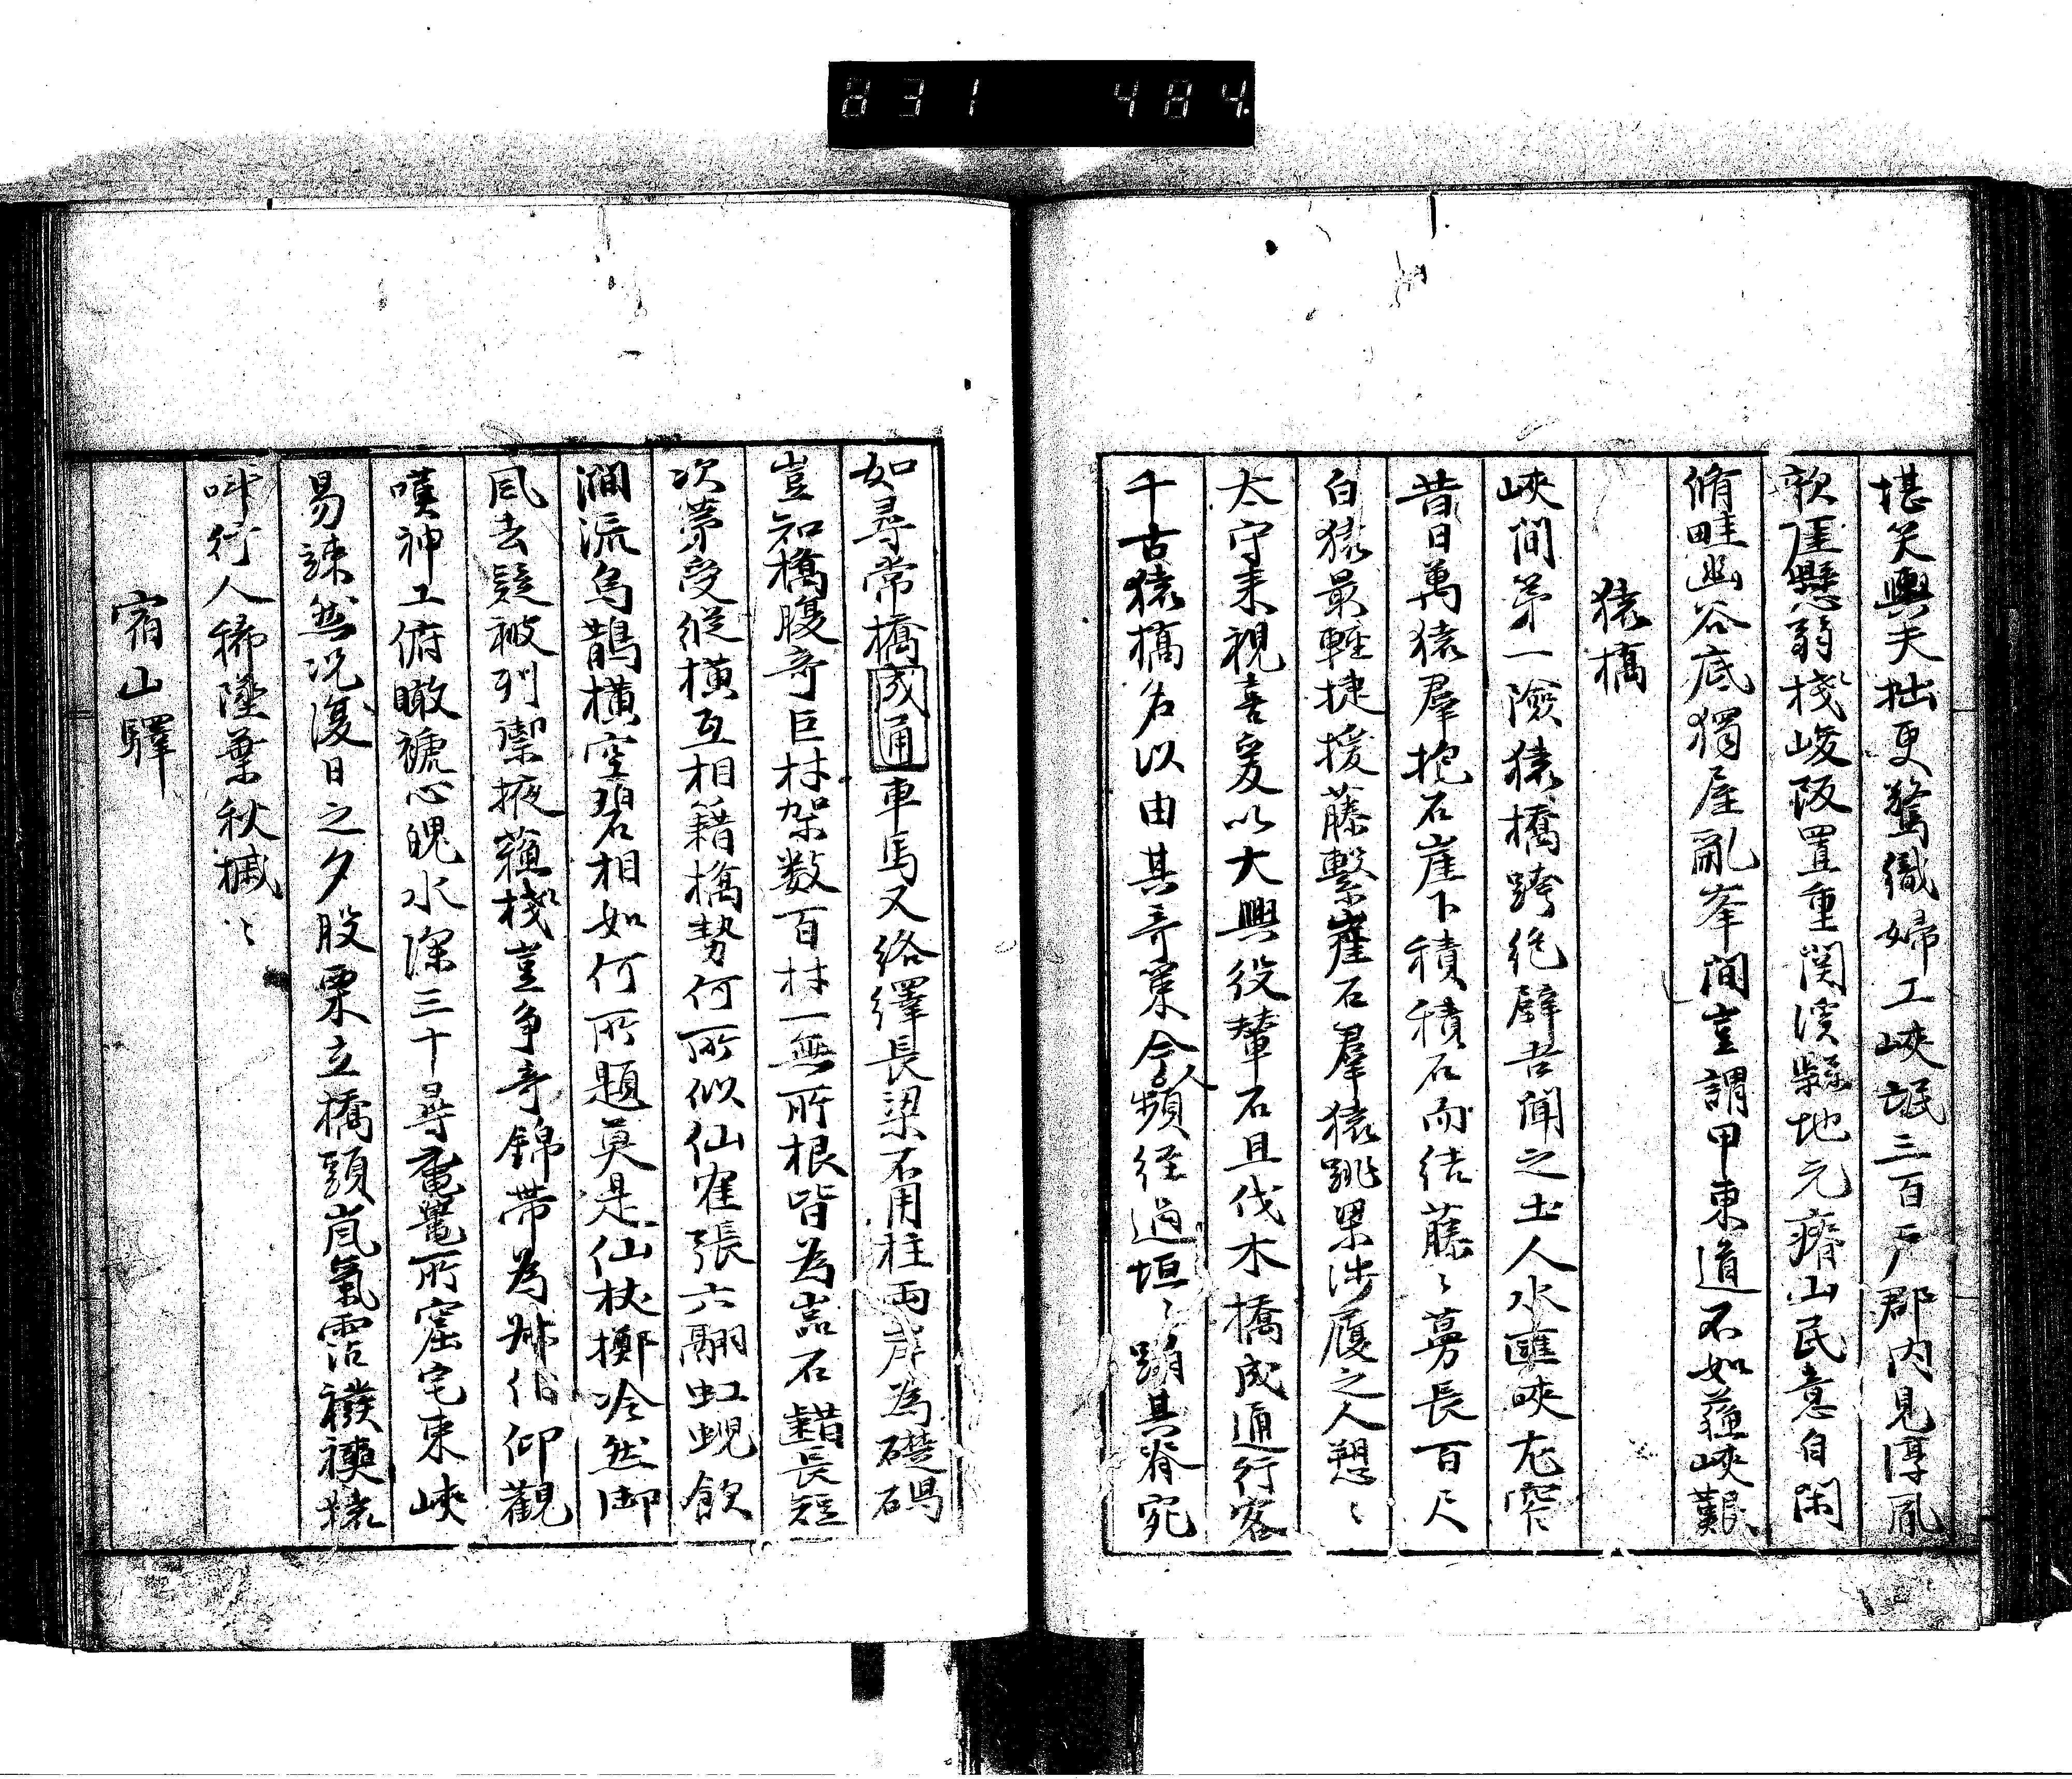 831 484
堪笑輿夫拙更驚織婦工峽氓三百戸郡内見淳風
欹厓懸弱棧峻阪置重関溪縣地元瘠山民意自閑
脩畦幽谷底獨屋亂峯間豈謂甲東道不如蘓峽艱
猿橋
峽間第一險猿橋跨絶壁吾聞之土人水匯峽尤窄
昔日萬猿羣抱石崖下積積石而結藤〻蔓長百尺
白猿最輕捷援藤繫崖石羣猿跳果渉履之人愬〻
太守来視喜爰以大興役輦石且伐木橋成通行客
千古猿橋名以由其奇策今人頻径過垣〻蹋其脊宛
如尋常橋成通車馬又絡繹長梁不用柱両岸為礎碣
豈知橋腹奇巨材架数百材一無所根皆為嵓石齰長短
次第受縦横互相籍橋勢何所似仙寉張六翮虹蜺飲
澗流烏鵲横空碧相如何所題莫是仙杖擲冷然御
風去疑被列禦掖蘓棧豈争奇錦帯為叔伯仰觀
嘆神工俯瞰褫心魄水深三十尋黿鼉所窟宅東峽
易竦然况復日之夕股栗立橋頭嵐氣霑襏襫猿
叫行人稀墜葉秋槭〻
宿山驛